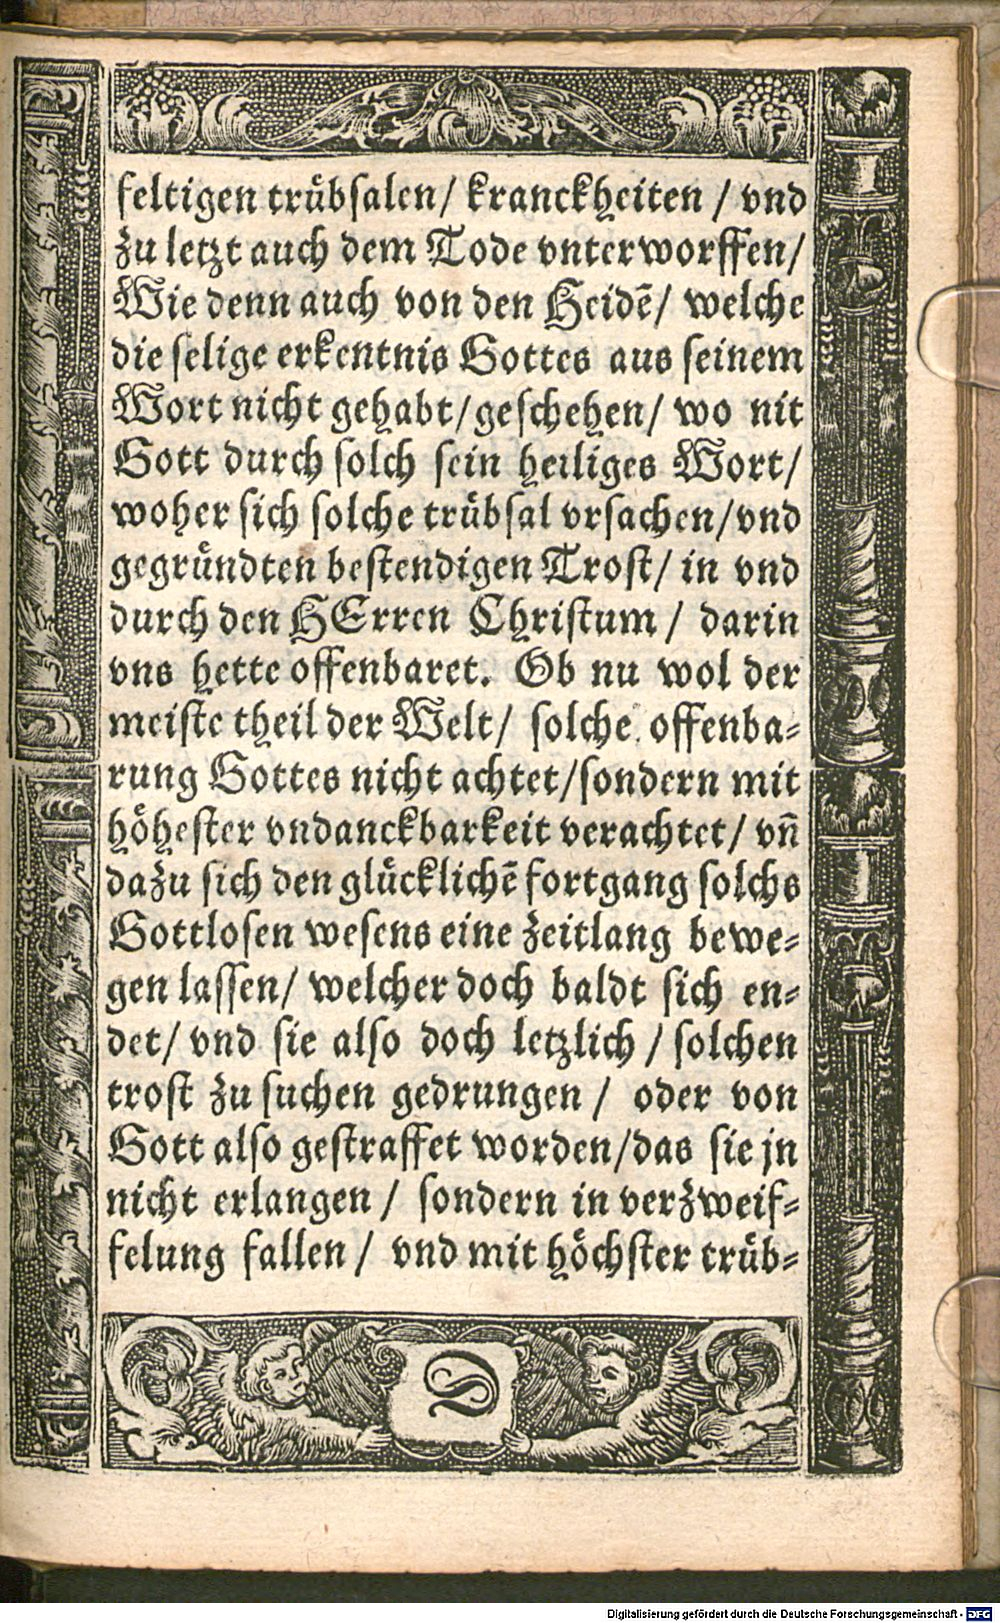 feltigen truͤbsalen/ kranckheiten / vnd
zu letzt auch dem Tode vnterworffen/
Wie denn auch von den Heidē/ welche
die selige erkentnis Gottes aus seinem
Wort nicht gehabt/geschehen/ wo nit
Gott durch solch sein heiliges Wort/
woher sich solche truͤbsal vrsachen/vnd
gegruͤndten bestendigen Trost/ in vnd
durch den HErren Christum/ darin
vns hette offenbaret. Ob nu wol der
meiste theil der Welt/ solche offenba-
rung Gottes nicht achtet/sondern mit
hoͤhester vndanckbarkeit verachtet/ vn̄
dazu sich den gluͤcklichē fortgang solchs
Gottlosen wesens eine zeitlang bewe-
gen lassen/ welcher doch baldt sich en-
det/ vnd sie also doch letzlich / solchen
trost zu suchen gedrungen / oder von
Gott also gestraffet worden/das sie jn
nicht erlangen / sondern in verzweif-
felung fallen / vnd mit hoͤchster truͤb-
Digitalisierung gefördert durch die Deutsche Forschungsgemeinschaft - DFG